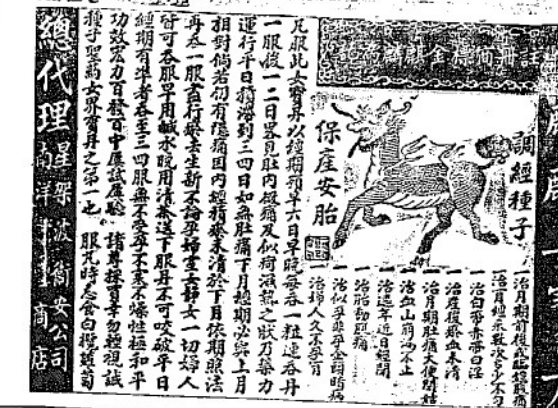 註冊商標金
調經種子
保產安胎
一治月期前後或臨經腹痛
一治月經來數次多少不勻
一治白帶赤帶白淫
一治產後瘀血未清
一治月期肚痛大便閉結
一治血山崩漏不止
一治遠年近日經閉
一治胎動腹痛
一治似孕非孕金面暗病
一治婦人久不孕育
凡服此女寶丹以經期預早六日早晚每吞一粒連吞丹
一服後一二日畧見肚內微痛及似熱之狀乃藥力
運行平日積滯到三四日如無肚痛下月經期必與上月
相對倘若仍有隱痛因內經積瘀未清於下月依期照法
再吞一服盡行瘀去生新不論孕婦室女靜女一切婦人
皆可吞服早用鹹水晚用清茶送下服丹不可咬破平日
經期有準者吞至三四服無不受孕不寒不燥性極和平
功效宏力百發百中屢試屢驗 諸尊採買幸勿輕視誠
種子聖葯女界寶丹之第一也 服丸時忌食白欖蘿蔔
總代理
星架波衞安公司
南洋商店